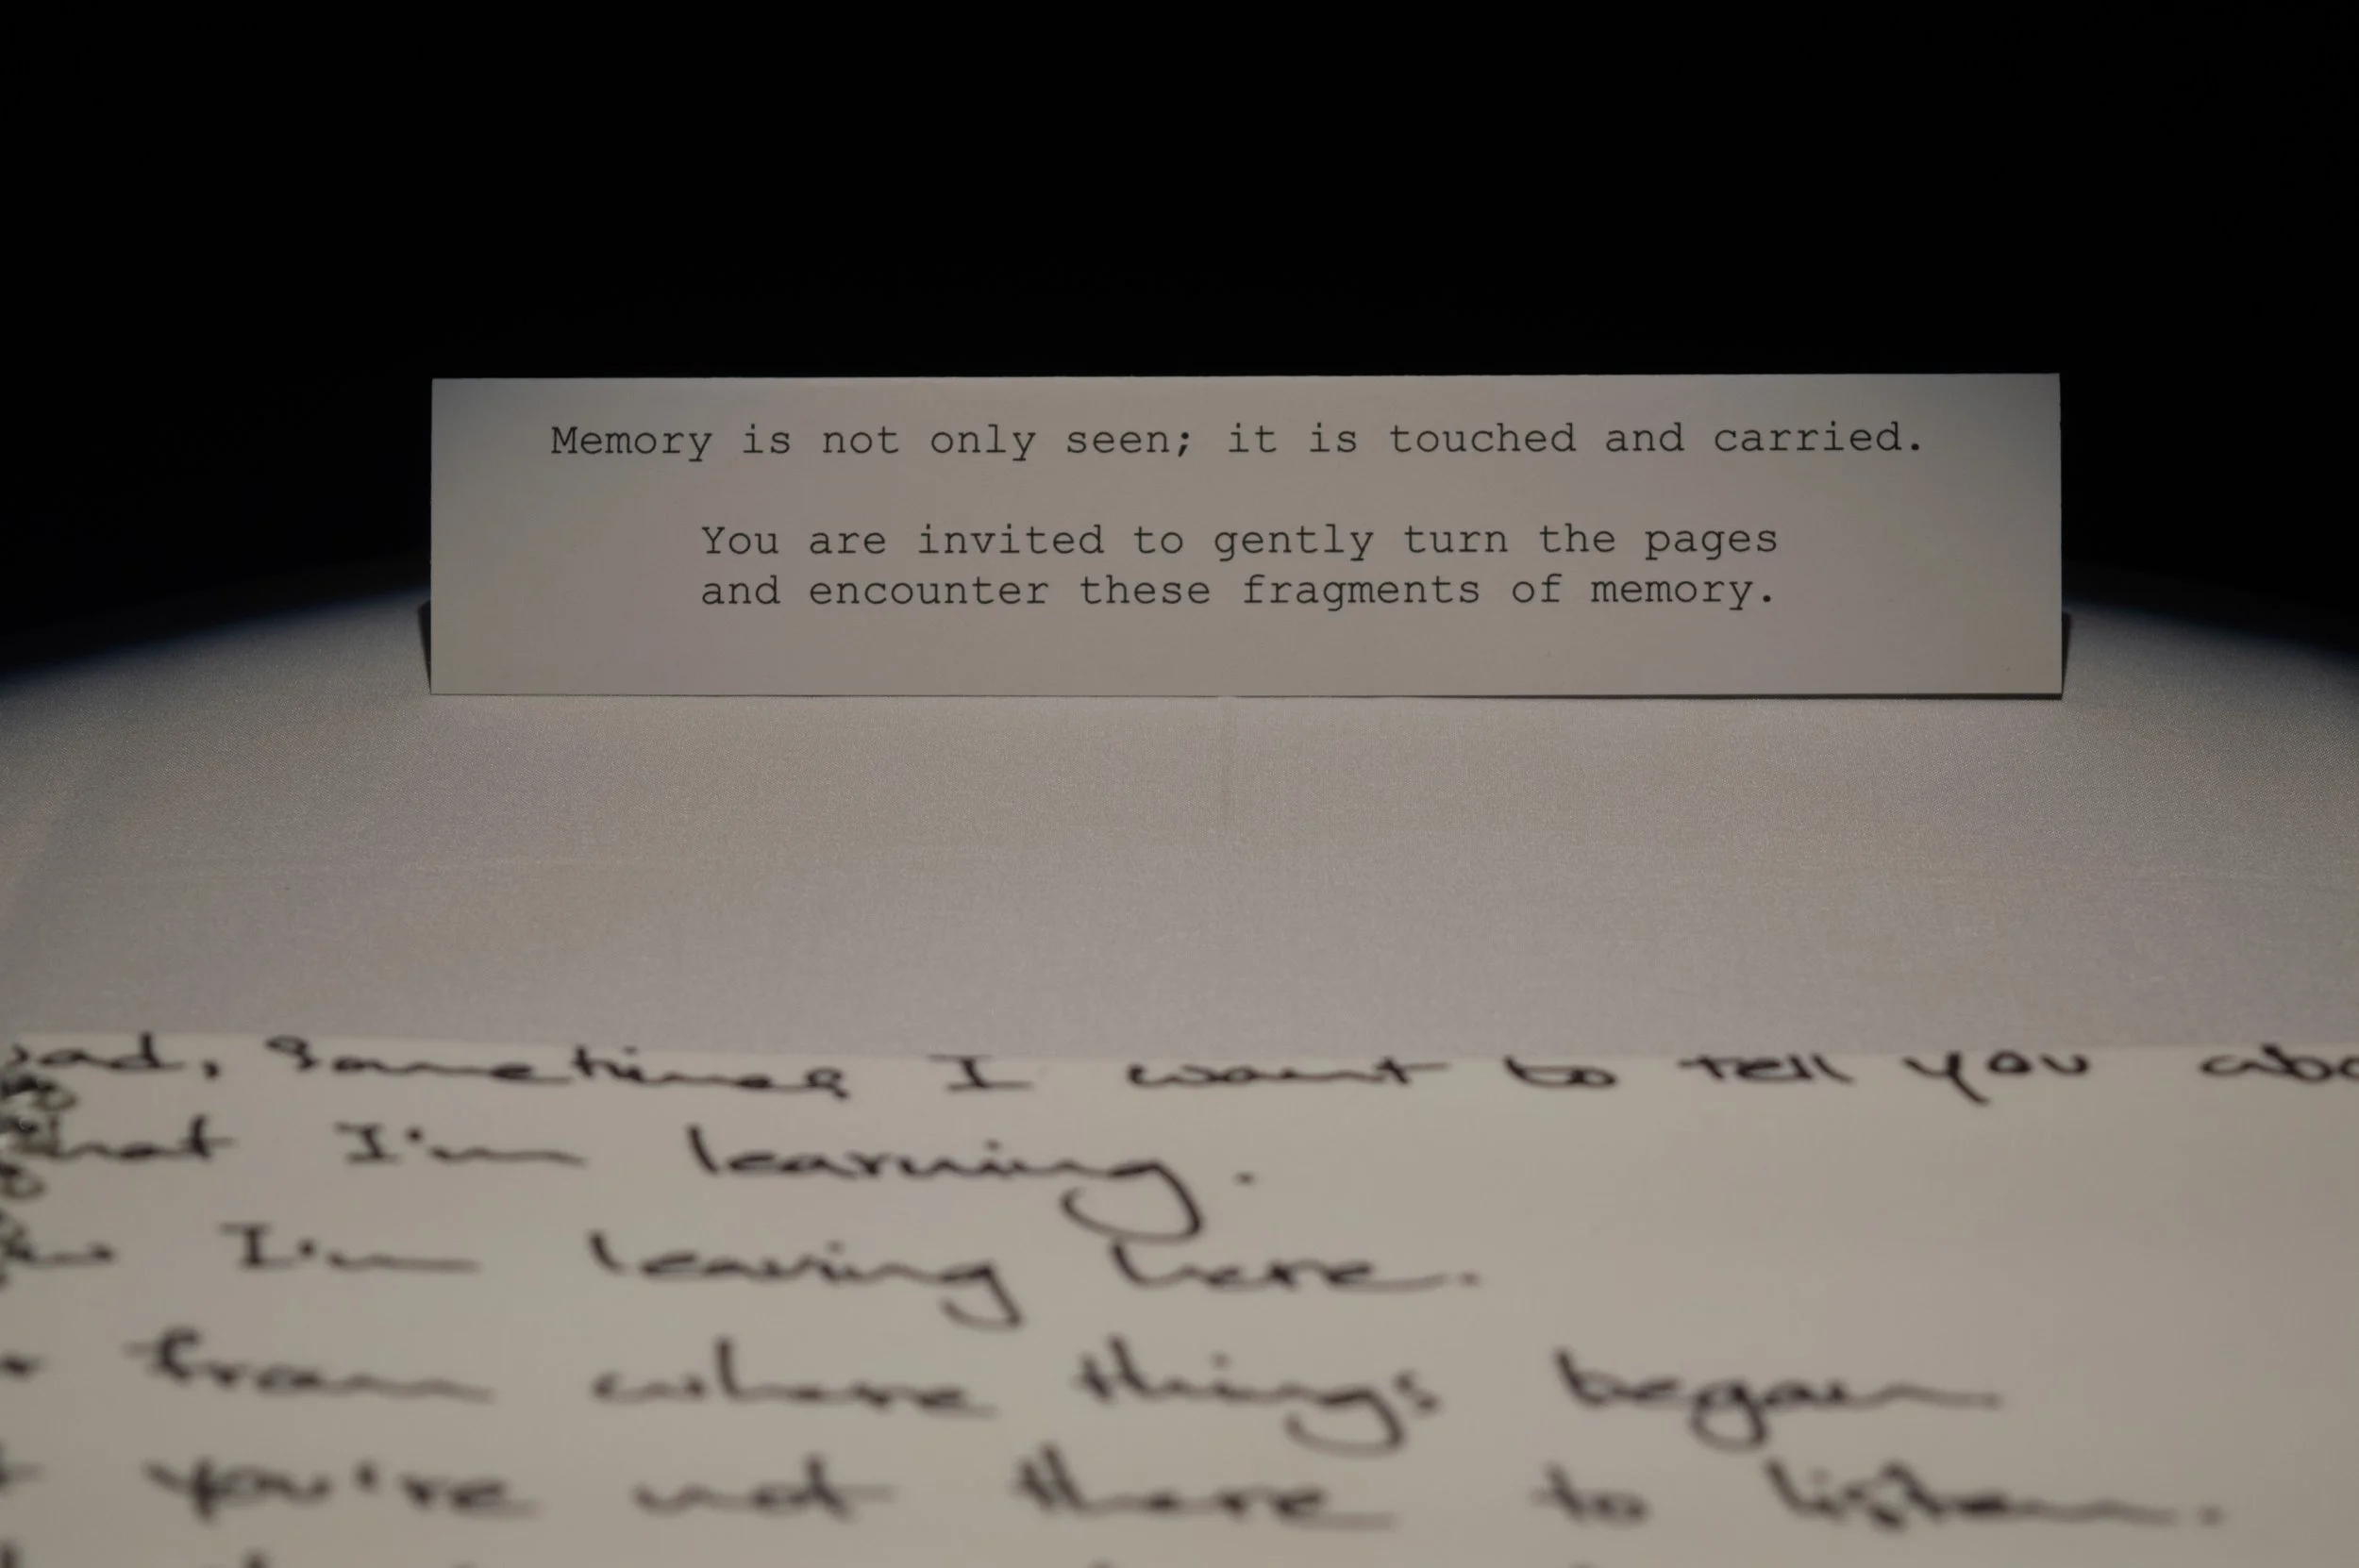 Memory is not only seen; it is touched and carried.
You are invited to gently turn the pages
and encounter these fragments of memory.
Sometimes I want to tell you
I'm learning.
I'm leaving here.
from where things began
you're not there to listen.